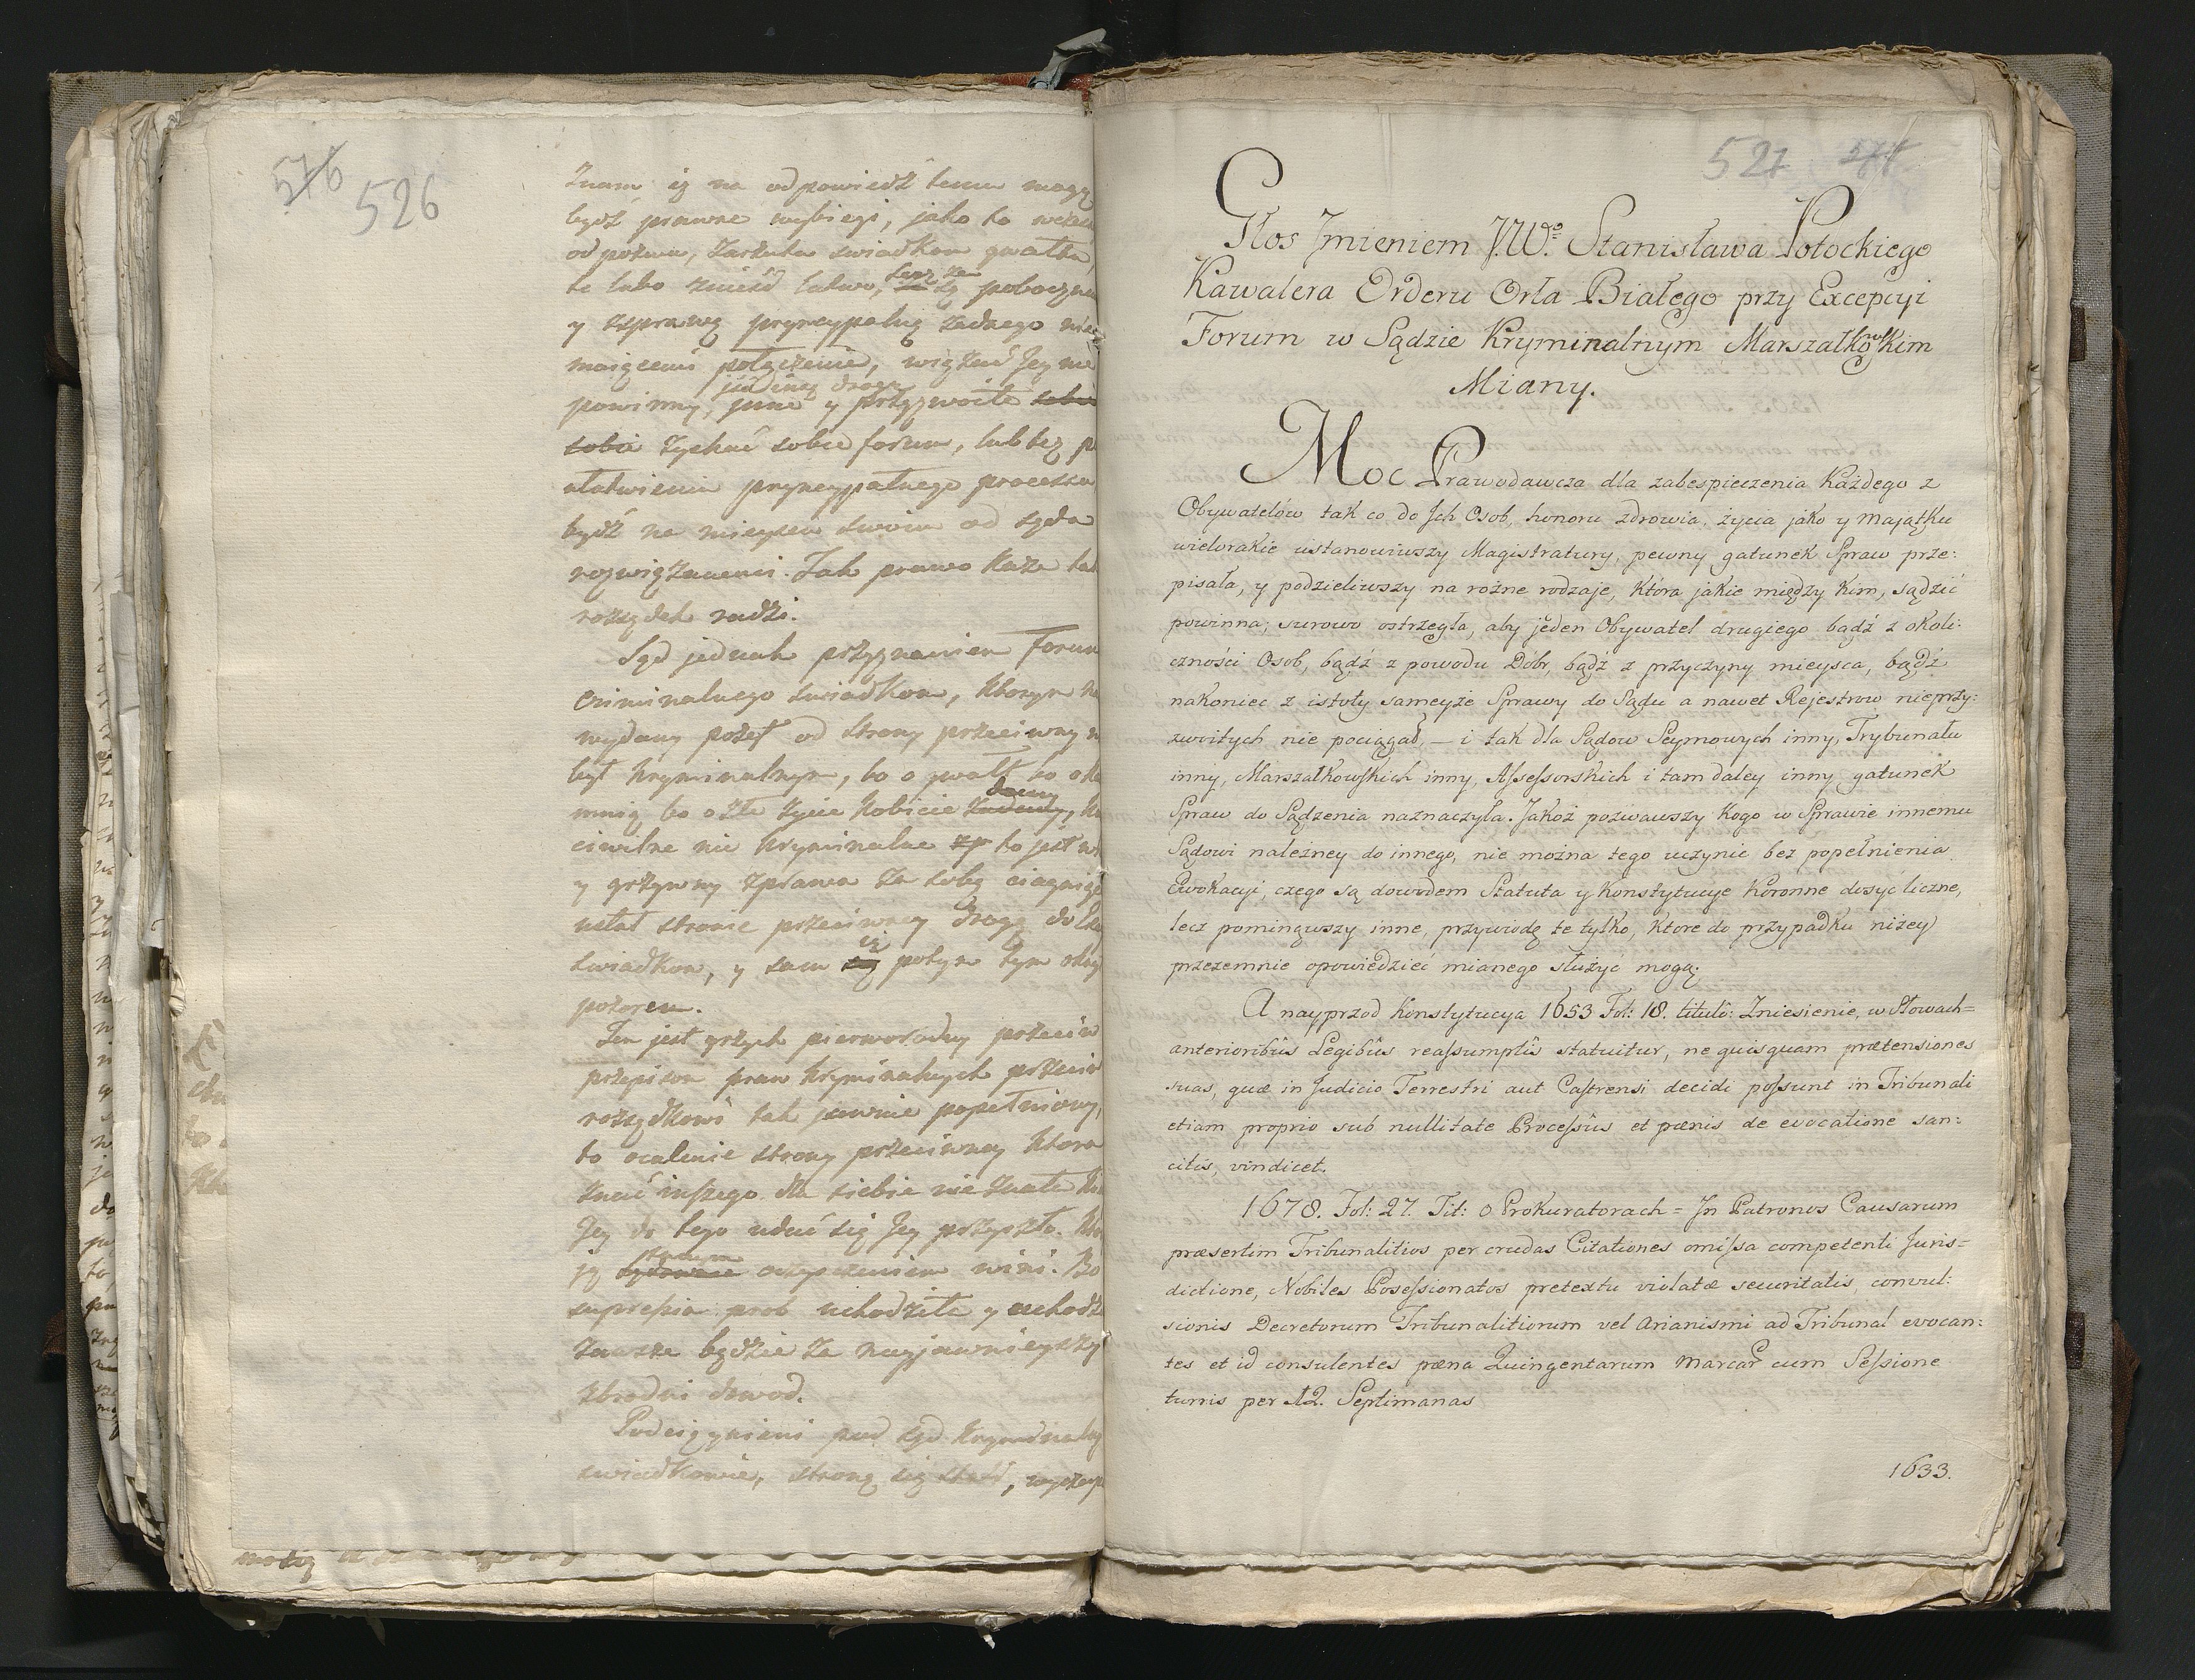 526
Znam iż na odpowiedź temu mogą
bydź prawne wybiegi, jako to
odpozwu, zarzutu swiadkom gwałtu,
te lubo znieść łatwo, lecz za poboczne
y zsprawą pryncypalną żadnego nie
maiącemi połączenie, wiązać Jey nie
powinny, jediną drogą y przyzwoite
sobie zyskać sobie forum, lub też
ułatwieniu pryncypalnego processu
bydź na mieyscu swoim od sądu
rozwiązanemi. Tak prawo każe tak
rozsądek radzi.
Sąd jednak przyznaniem Forum
criminalnego swiadkom, ktorym
wydany pozew od strony przeciwney
był kryminalnym, bo o gwałt bo
mnią bo o złe życie kobicie,
ciwilne nie kryminalne to jest
y grzywny zprawa za sobą ciągnące
usłał stronie przeciwney drogę do
swiadkow, y sam iż potym tym
pozorem.
Ten jest grzych pierworodny przeciw
przepisom praw kryminalnych przeciw
rozsądkowi tak jawnie popełniony,
to ocalenie strony przeciwney ktora
znać inszego dla siebie nie znała
Jey do tego udać się Jey przyszło.
ją oczyszczeniem wini. Bo
supressia prob uchodziła y uchodzić
zawsze będzie za nayjawnieyszy
zbrodni dowod.
Podciągnieni pod sąd kryminalny
swiadkowie, stroną się stać,
527
Głos Jmieniem J.W.º Stanisława Potockiego
Kawalera Orderu Orła Białego przy Excepcyi
Forum w Sądzie Kryminalnym Marszałkowskim
Miany.
Moc Prawodawcza dla zabespieczenia Każdego z
Obywatelów tak co do Jch Osob, honoru zdrowia, życia jako y majątku
wielorakie ustanowiwszy Magistratury, pewny gatunek Spraw prze:
pisała, y podzieliwszy na rożne rodzaje, Która jakie między Kim, sądzić
powinna; surowo ostrzegła, aby jeden Obywatel drugiego bądź z okoli:
czności Osob, bądź z powodu Dóbr, bądź z przyczyny mieysca, bądź
nakoniec z istoty sameyże Sprawy do Sądu a nawet Rejestrow nieprzy:
zwoitych nie pociągał, — i tak dla Sądow Seymowych inny, Trybunału
inny, Marszałkowskich inny, Assessorskich i tam daley inny gatunek
Spraw do Sądzenia naznaczyła. Jakoż pozwawszy Kogo w Sprawie innemu
Sądowi należney do innego, nie można tego uczynic bez popełnienia
Ewokacyi, czego są dowodem Statuta y Konstytucye Koronne dosyć liczne,
lecz pominąwszy inne, przywiodę te tylko, Ktore do przypadku niżey
przezemnie opowiedzieć mianego służyć mogą.
A nayprzod Konstytucya 1653 Fol: 18. titulô: Zniesienie, w Słowach=
anterioribûs Legibûs reassumptîs statuitur, ne quisquam prætensiones
suas, quæ in Judicio Terrestri aut Castrensi decidi possunt in Tribunali
etiam proprio sub nullitate Processûs et pœnis de evocatione san:
citis, vindicet.
1678. Fol: 27. Tit: o Prokuratorach = Jn Patronos Causarum
præsertim Tribunalitios per crudas Citationes omissa competenti Juris=
dictione, Nobiles Posessionatos pretextu violatæ securitatis, convul:
sionis Decretorum Tribunalitiorum vel Arianismi ad Tribunal evocan:
tes et id consulentes pœna Quingentarum Marcar cum Sessione
turris per 12. Septimanas
1633.